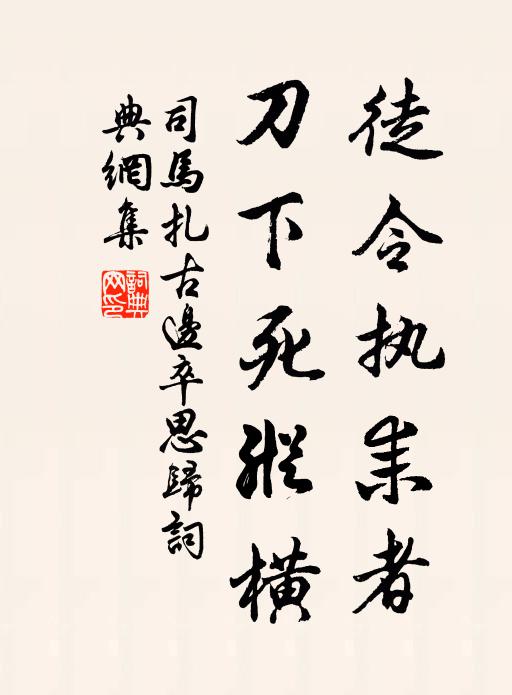 徒令执耒者
刀下死縱橫
司馬扎古邊卒思歸詞
典網集
詞典網印